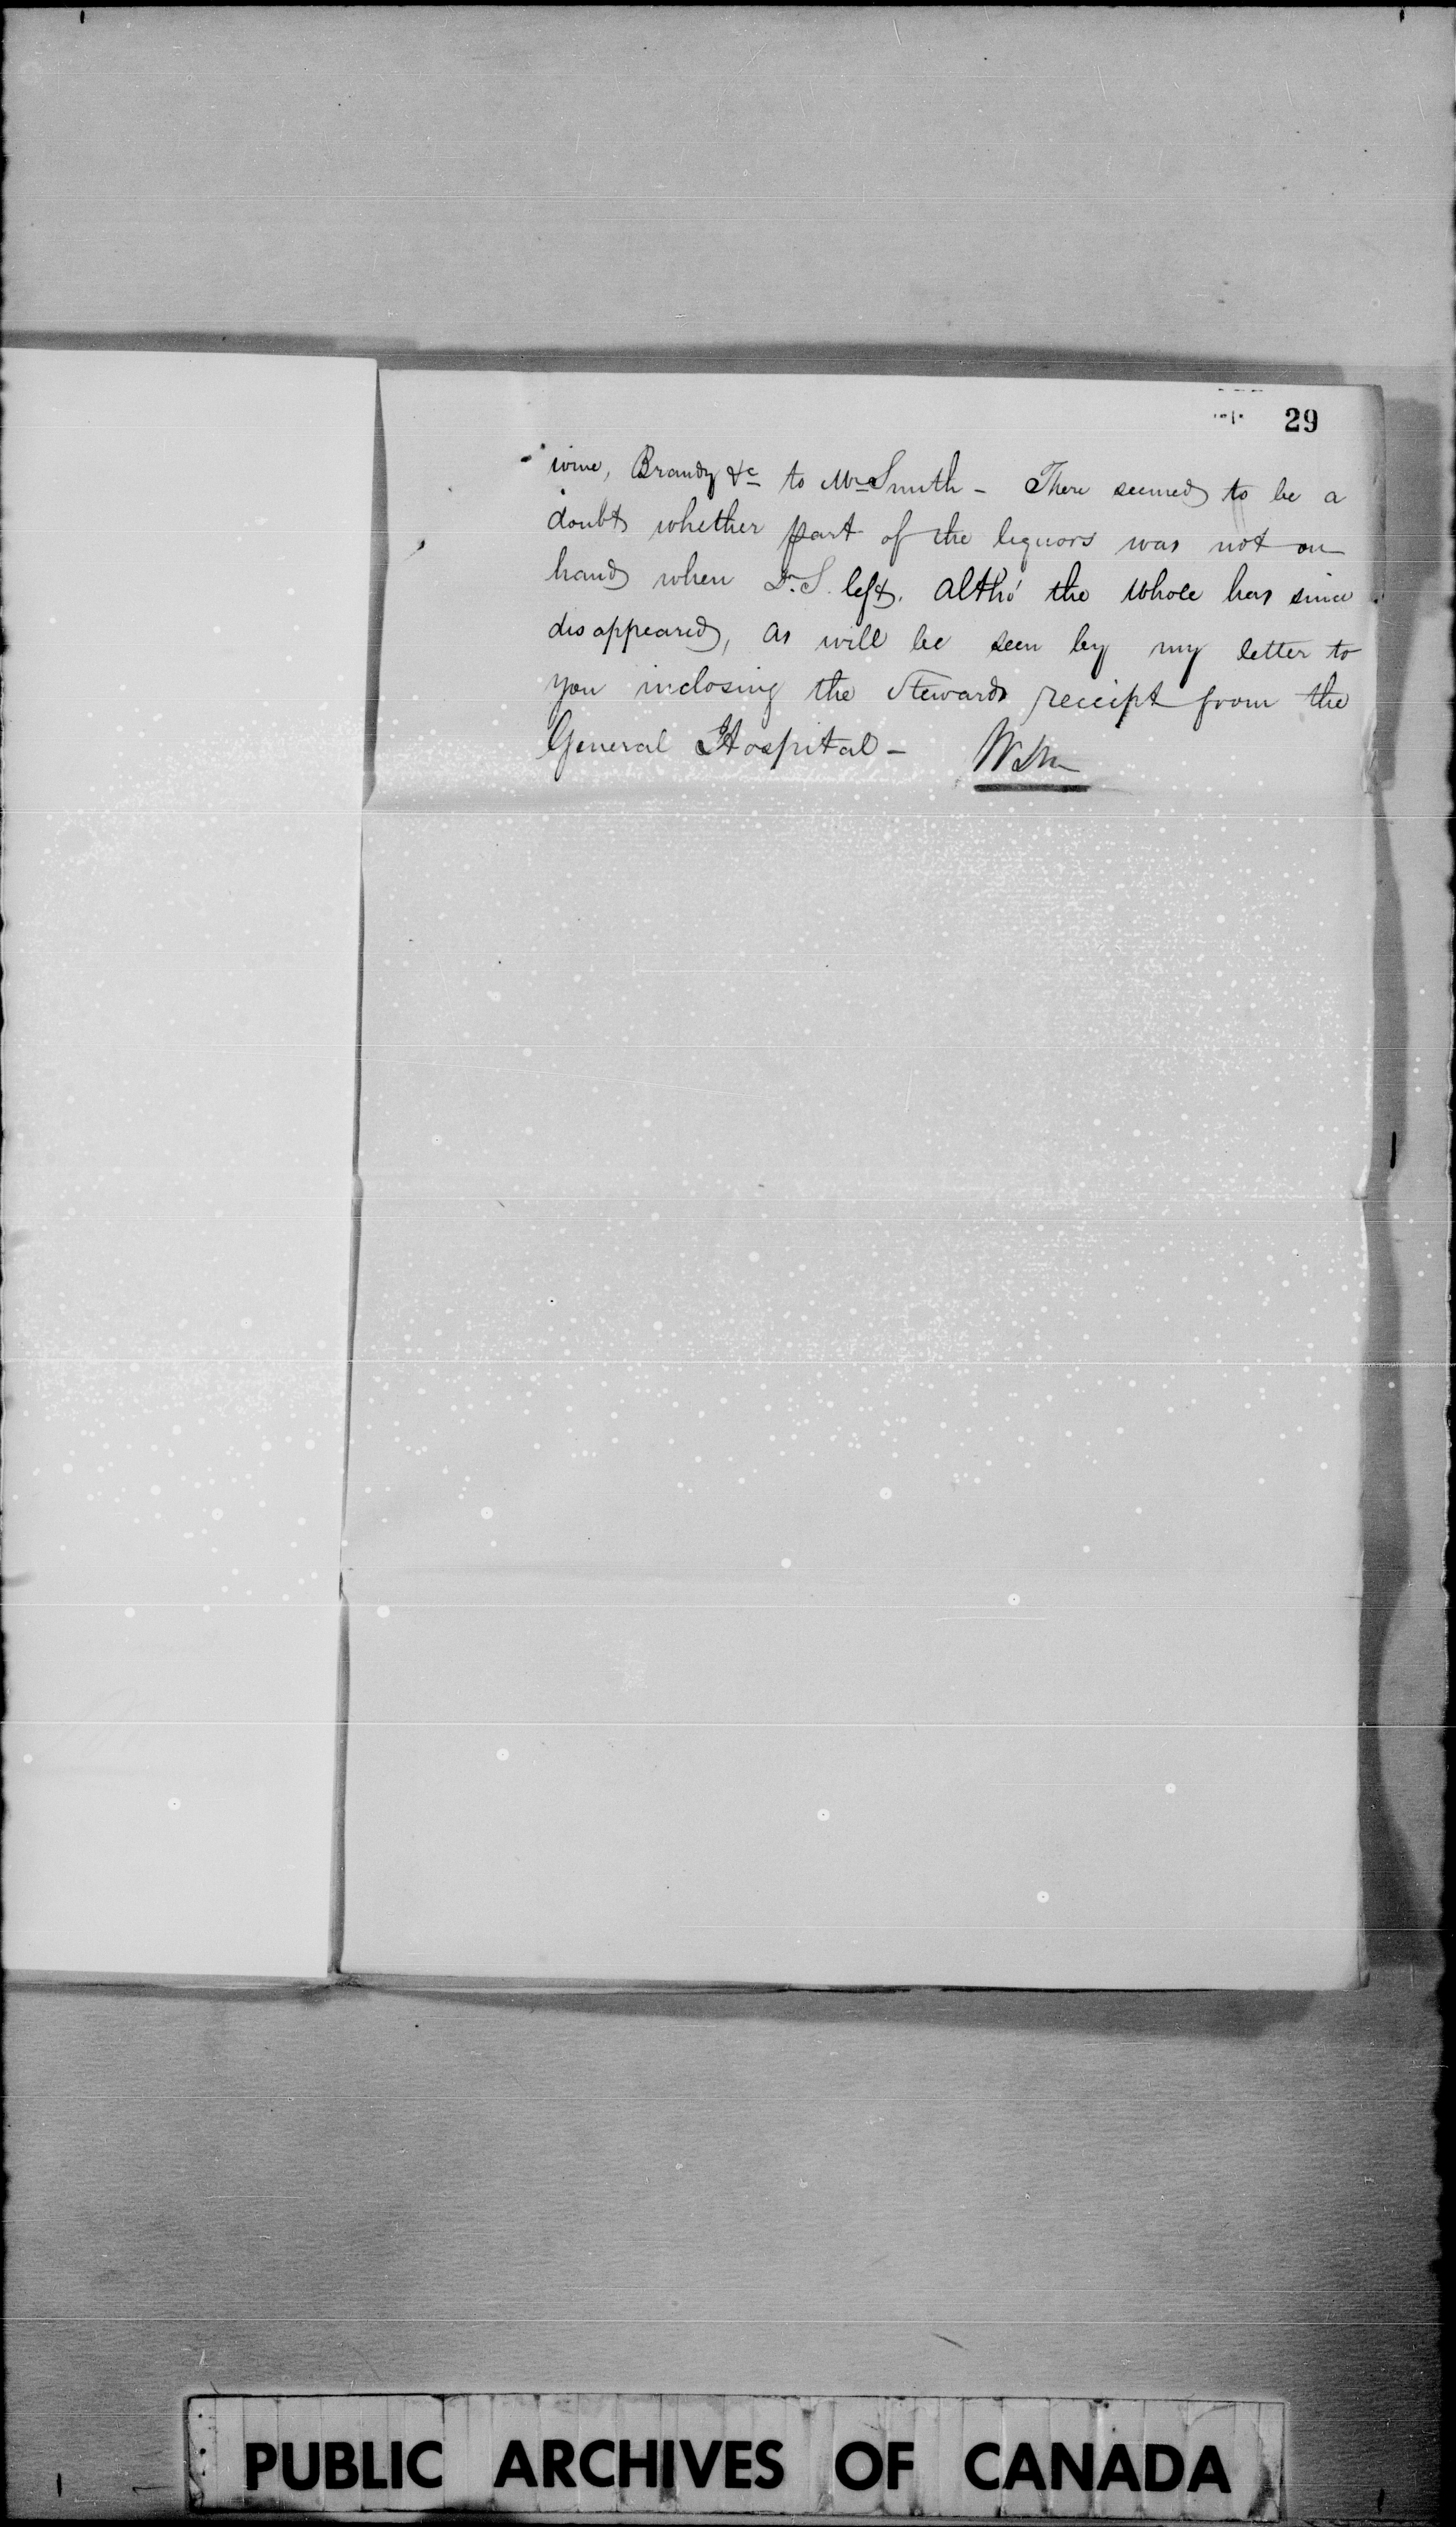 29
wine, Brandy &c to Mr Smith - There seemed to be a
doubt whether part of the liquors was not on
hand when Dr. S. left. altho' the whole has since
disappeared, as will be seen by my letter to
you inclosing the Stewards receipt from the
General Hospital -
PUBLIC ARCHIVES OF CANADA